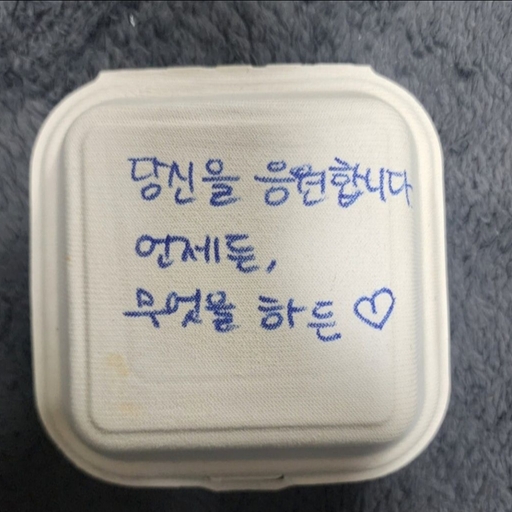 당신을 응원합니다
언제든,
무엇을 하든 ♡